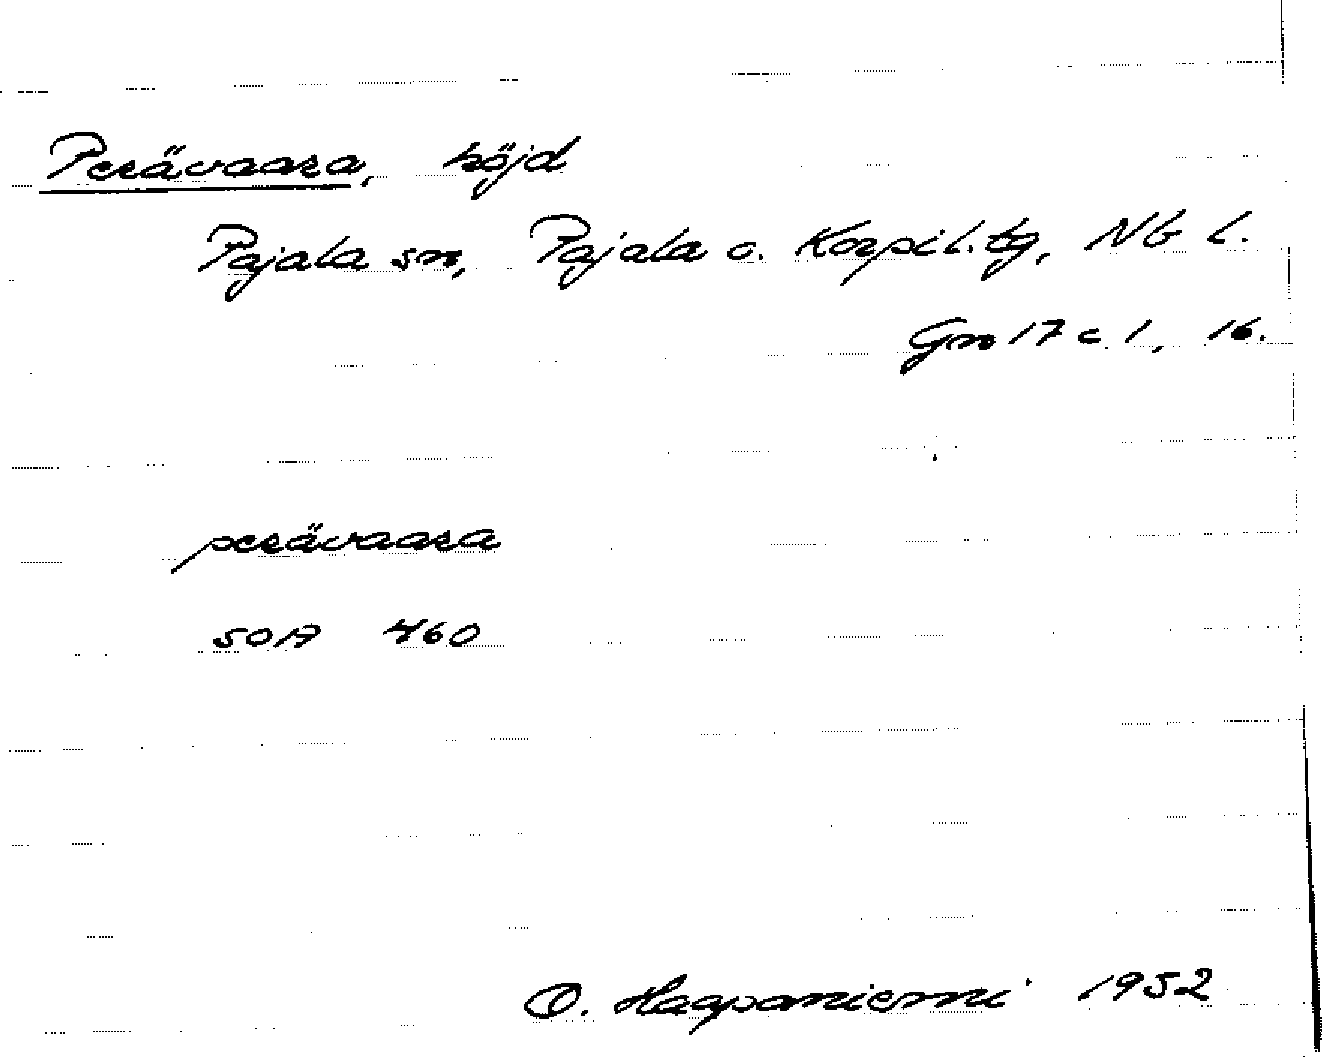 Perävaara, höjd
Pajala sn, Pajala o. Korpil. tg, Nb l.
Gm 17 c 1, 16.
perävaara
SOA 460
O. Haapaniemi 1952